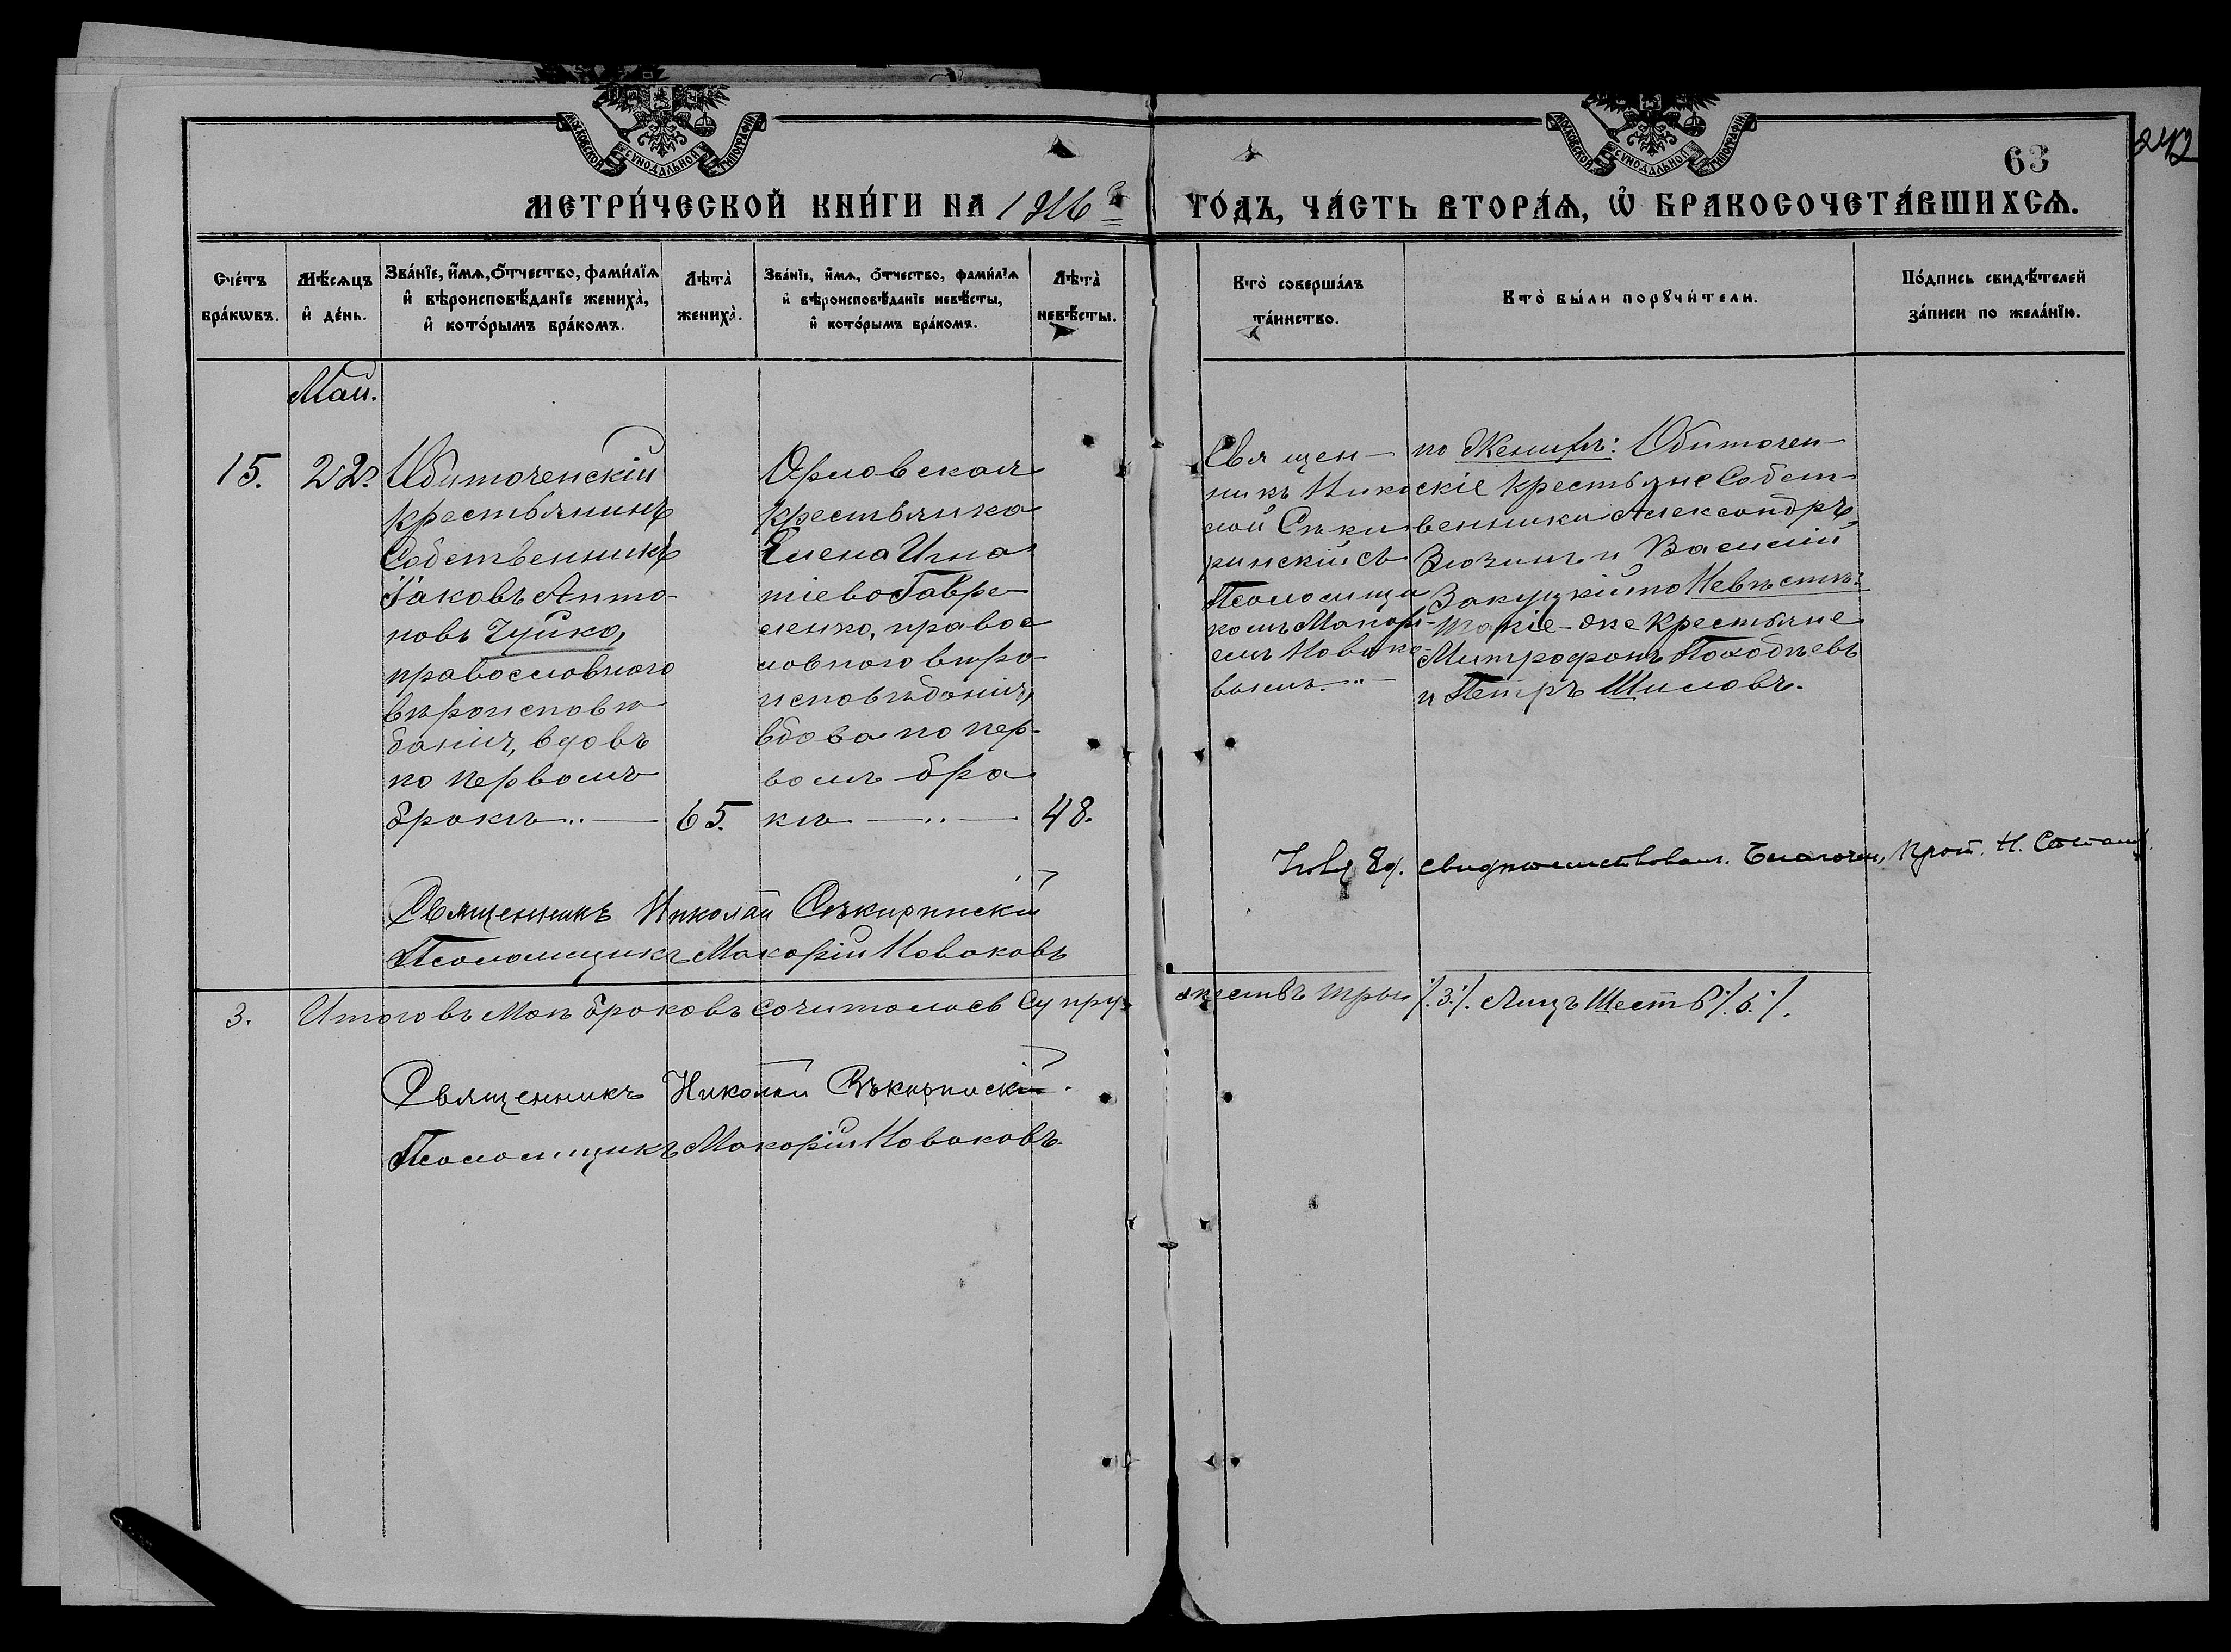 МОСКОВСКОЙ СѴНОДАЛЬНОЙ ТИПОГРАФІИ
МОСКОВСКОЙ СѴНОДАЛЬНОЙ ТИПОГРАФІИ
63
242
МЕТРИ́ЧЕСКОЙ КНИ́ГИ НА 1916й
ГО́ДЪ, ЧА́СТЬ ВТОРА́Ѧ, Ѽ БРАКОСОЧЕТА́ВШИХСѦ.
Сче́тъ
бра́кѡвъ.
Мѣ́сѧцъ
и҆ де́нь.
Зва́нїе, и҆́мѧ, о҆́тчество, фами́лїѧ
и҆ вѣроисповѣ́данїе жениха̀,
и҆ кото́рымъ бра́комъ.
Лѣ́та̀
жениха̀.
Зва́нїе, и҆́мѧ, о҆́тчество, фами́лїѧ
и҆ вѣроисповѣ́данїе невѣ́сты,
и҆ кото́рымъ бра́комъ.
Лѣ́та̀
невѣ́сты.
Кто̀ соверша́лъ
та́инство.
Кто̀ бы́ли порꙋчи́тели.
По́дпись свидѣ́телей
за́писи по жела́нїю.
Май.
15.
22.
Обиточенскій
крестьянинъ
Собственникъ
Іаковъ Анто-
новъ Чуйко,
православного
вѣроисповѣ
данія, вдовъ
по первомъ
бракѣ
65.
Орловская
крестьянка
Елена Игна
тіева Гавре
ленко, правос
лавного вѣро-
исповѣданія,
вдова по пер-
вомъ бра
кѣ
48.
Священ-
никъ Нико
лай Сѣки
ринскій съ
Псаломщи
комъ Макарі-
емъ Новако-
вымъ.
по Женихѣ: Обиточен-
скіе крестьяне Собст-
венники Александръ
Зюзинъ и Василій
Закуцкій по Невѣстѣ:
Такіе-же крестьяне
Митрофанъ Походѣевъ
и Петръ Шиловъ.
8 д. свидѣтельствовалъ. Благочин, Прот. Н.
Священникъ Николай Сѣкиринскій
Псаломщикъ Макарій Новаковъ
3. Итого въ Маѣ браковъ сочиталось Супру-
жествъ тры /.3./. Лицъ Шесть /.6./.
Священникъ Николай Сѣкиринскій.
Псаломщикъ Макарій Новаковъ